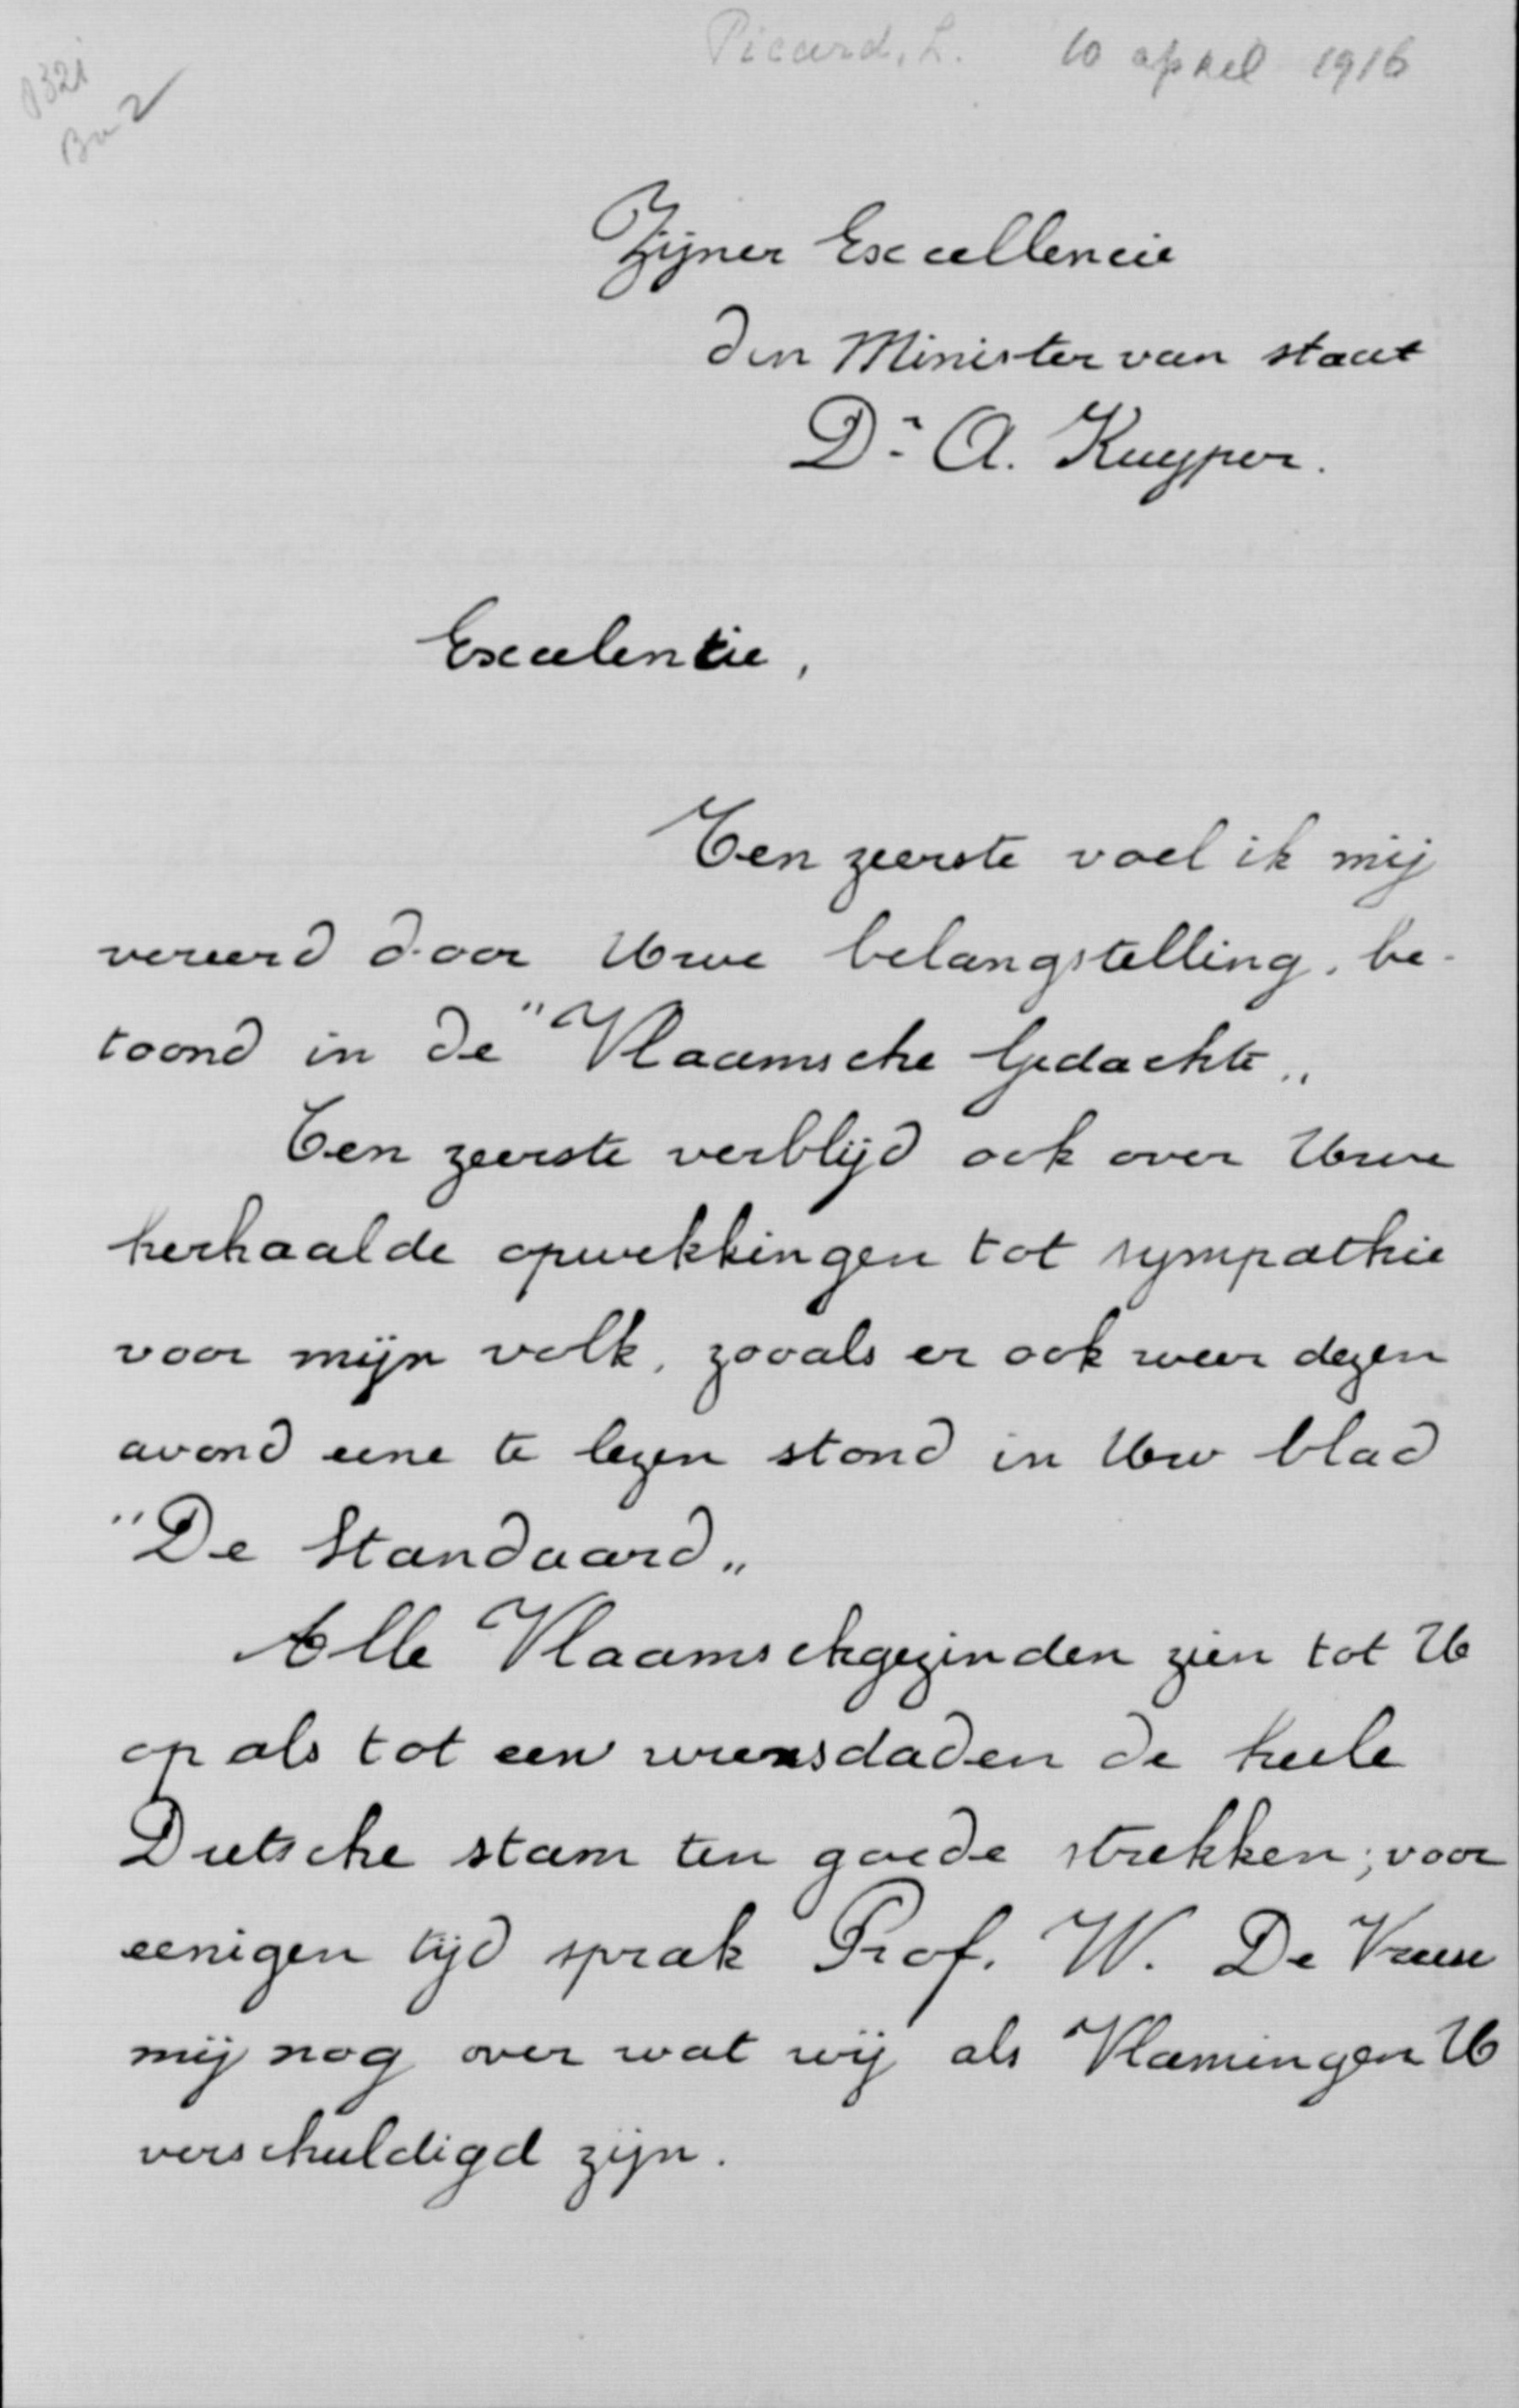 Picard, L. 10 april 1916
Zijner Excellencie
den Minister van staat
Dr A. Kuyper.
Excelentie,
Ten zeerste voel ik mij
vereerd door Uwe belangstelling, be-
toond in de "Vlaamsche Gedachte„
Ten zeerste verblijd ook over Uwe
herhaalde opwekkingen tot sympathie
voor mijn volk, zooals er ook weer dezen
avond eene te lezen stond in Uw blad
"De Standaard„
Alle Vlaamschgezinden zien tot U
op als tot een wiens daden de heele
Dietsche stam ten goede strekken; voor
eenigen tijd sprak Prof. W. De Vreese
mij nog over wat wij als Vlamingen U
verschuldigd zijn.